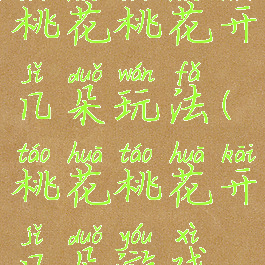 桃花桃花开
jǐ duǒ wán fǎ
几朵玩法(
táo huā táo huā kāi
桃花桃花开
jǐ duǒ yóu xì